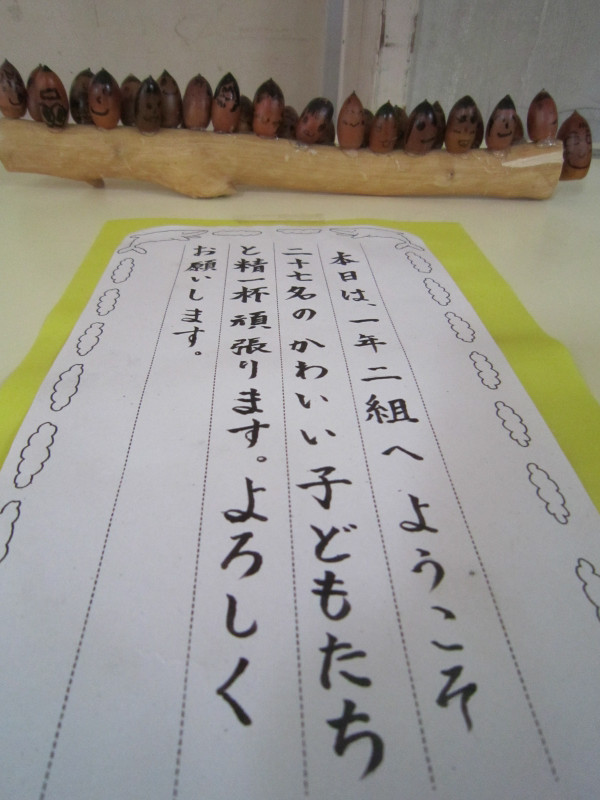 本日は、一年二組へようこそ
二十七名のかわいい子どもたち
と精一杯頑張ります。よろしく
お願いします。